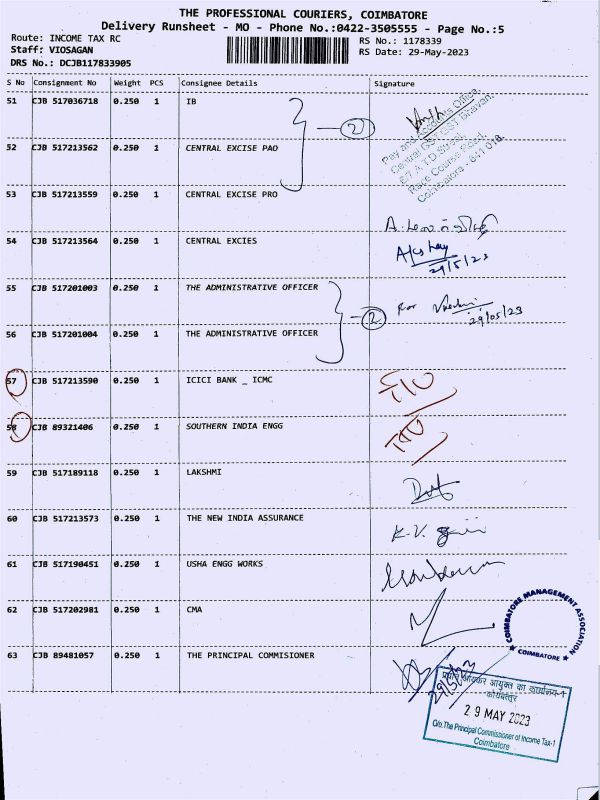 THE PROFESSIONAL COURIERS, COIMBATORE
Delivery Runsheet - MO - Phone No.:0422-3505555 - Page No.:5
Route: INCOME TAX RC
RS No.: 1178339
Staff: VIOSAGAN
RS Date: 29-May-2023
DRS No.: DCJB117833905
S No Consignment No Weight PCS Consignee Details Signature
51 CJB 517036718 0.250 1 IB
2
Pay and Accounts Office,
Central GST, GST Bhavan,
6/7 A.T.D Street,
Race Course Road,
Coimbatore - 641 018.
52 CJB 517213562 0.250 1 CENTRAL EXCISE PAO
53 CJB 517213559 0.250 1 CENTRAL EXCISE PRO
54 CJB 517213564 0.250 1 CENTRAL EXCIES
Akshay
29/5/23
55 CJB 517201003 0.250 1 THE ADMINISTRATIVE OFFICER
2 For
29/05/23
56 CJB 517201004 0.250 1 THE ADMINISTRATIVE OFFICER
57 CJB 517213590 0.250 1 ICICI BANK _ ICMC
58 CJB 89321406 0.250 1 SOUTHERN INDIA ENGG
59 CJB 517189118 0.250 1 LAKSHMI
60 CJB 517213573 0.250 1 THE NEW INDIA ASSURANCE
K.V.
61 CJB 517190451 0.250 1 USHA ENGG WORKS
62 CJB 517202981 0.250 1 CMA
COIMBATORE MANAGEMENT ASSOCIATION
★ COIMBATORE ★
63 CJB 89481057 0.250 1 THE PRINCIPAL COMMISIONER
29/5/23
प्रधान आयकर आयुक्त का कार्यालय-1
कोयंबत्तूर
29 MAY 2023
O/o. The Principal Commissioner of Income Tax-1
Coimbatore